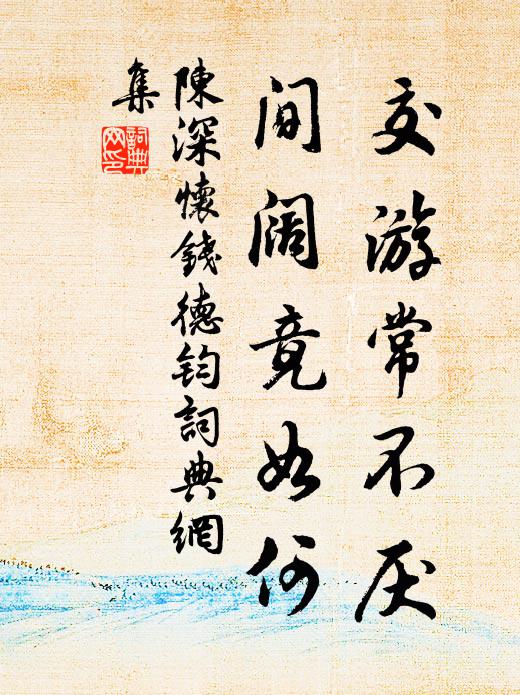 交游常不厌
间阔竟如何
陳深懷錢德鈞詞典網
集
詞典网印